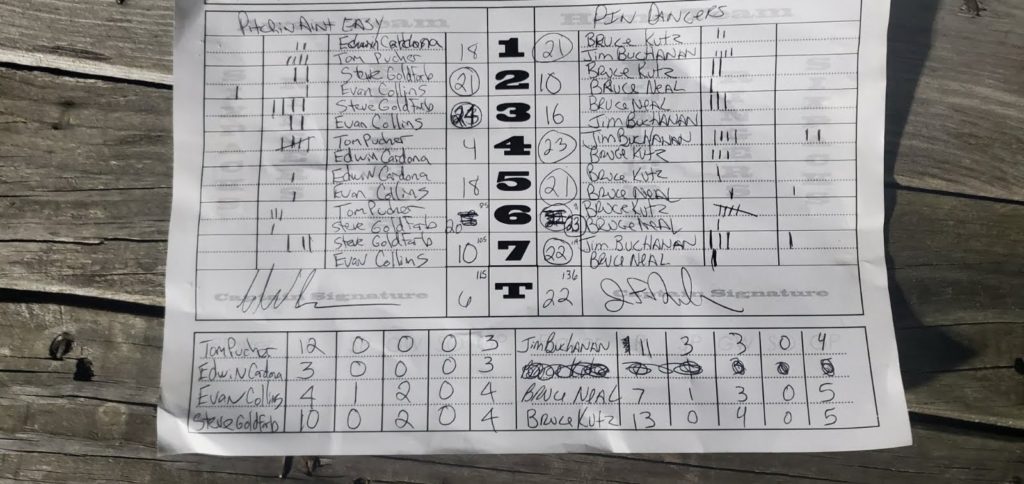 PITCHIN AINT EASY PIN DANCERS
Edwin Cardona 18 1 21 BRUCE KUTZ
Tom Pucher JIM BUCHANAN
Steve Goldfarb 21 2 10 BRUCE KUTZ
Evan Collins BRUCE NEAL
Steve Goldfarb 24 3 16 BRUCE NEAL
Evan Collins JIM BUCHANAN
Tom Pucher 4 4 23 JIM BUCHANAN
Edwin Cardona BRUCE KUTZ
Edwin Cardona 18 5 21 BRUCE KUTZ
Evan Collins BRUCE NEAL
Tom Pucher 6 BRUCE KUTZ
Steve Goldfarb 20 23 BRUCE NEAL
Steve Goldfarb 10 105 7 22 JIM BUCHANAN
Evan Collins BRUCE NEAL
115 136
Captain Signature 6 T 22 Captain Signature
Tom Pucher 12 0 0 0 3 JIM BUCHANAN 11 3 3 0 4
EDWIN Cardona 3 0 0 0 3
Evan Collins 4 1 2 0 4 BRUCE NEAL 7 1 3 0 5
Steve Goldfarb 10 0 2 0 4 BRUCE KUTZ 13 0 4 0 5